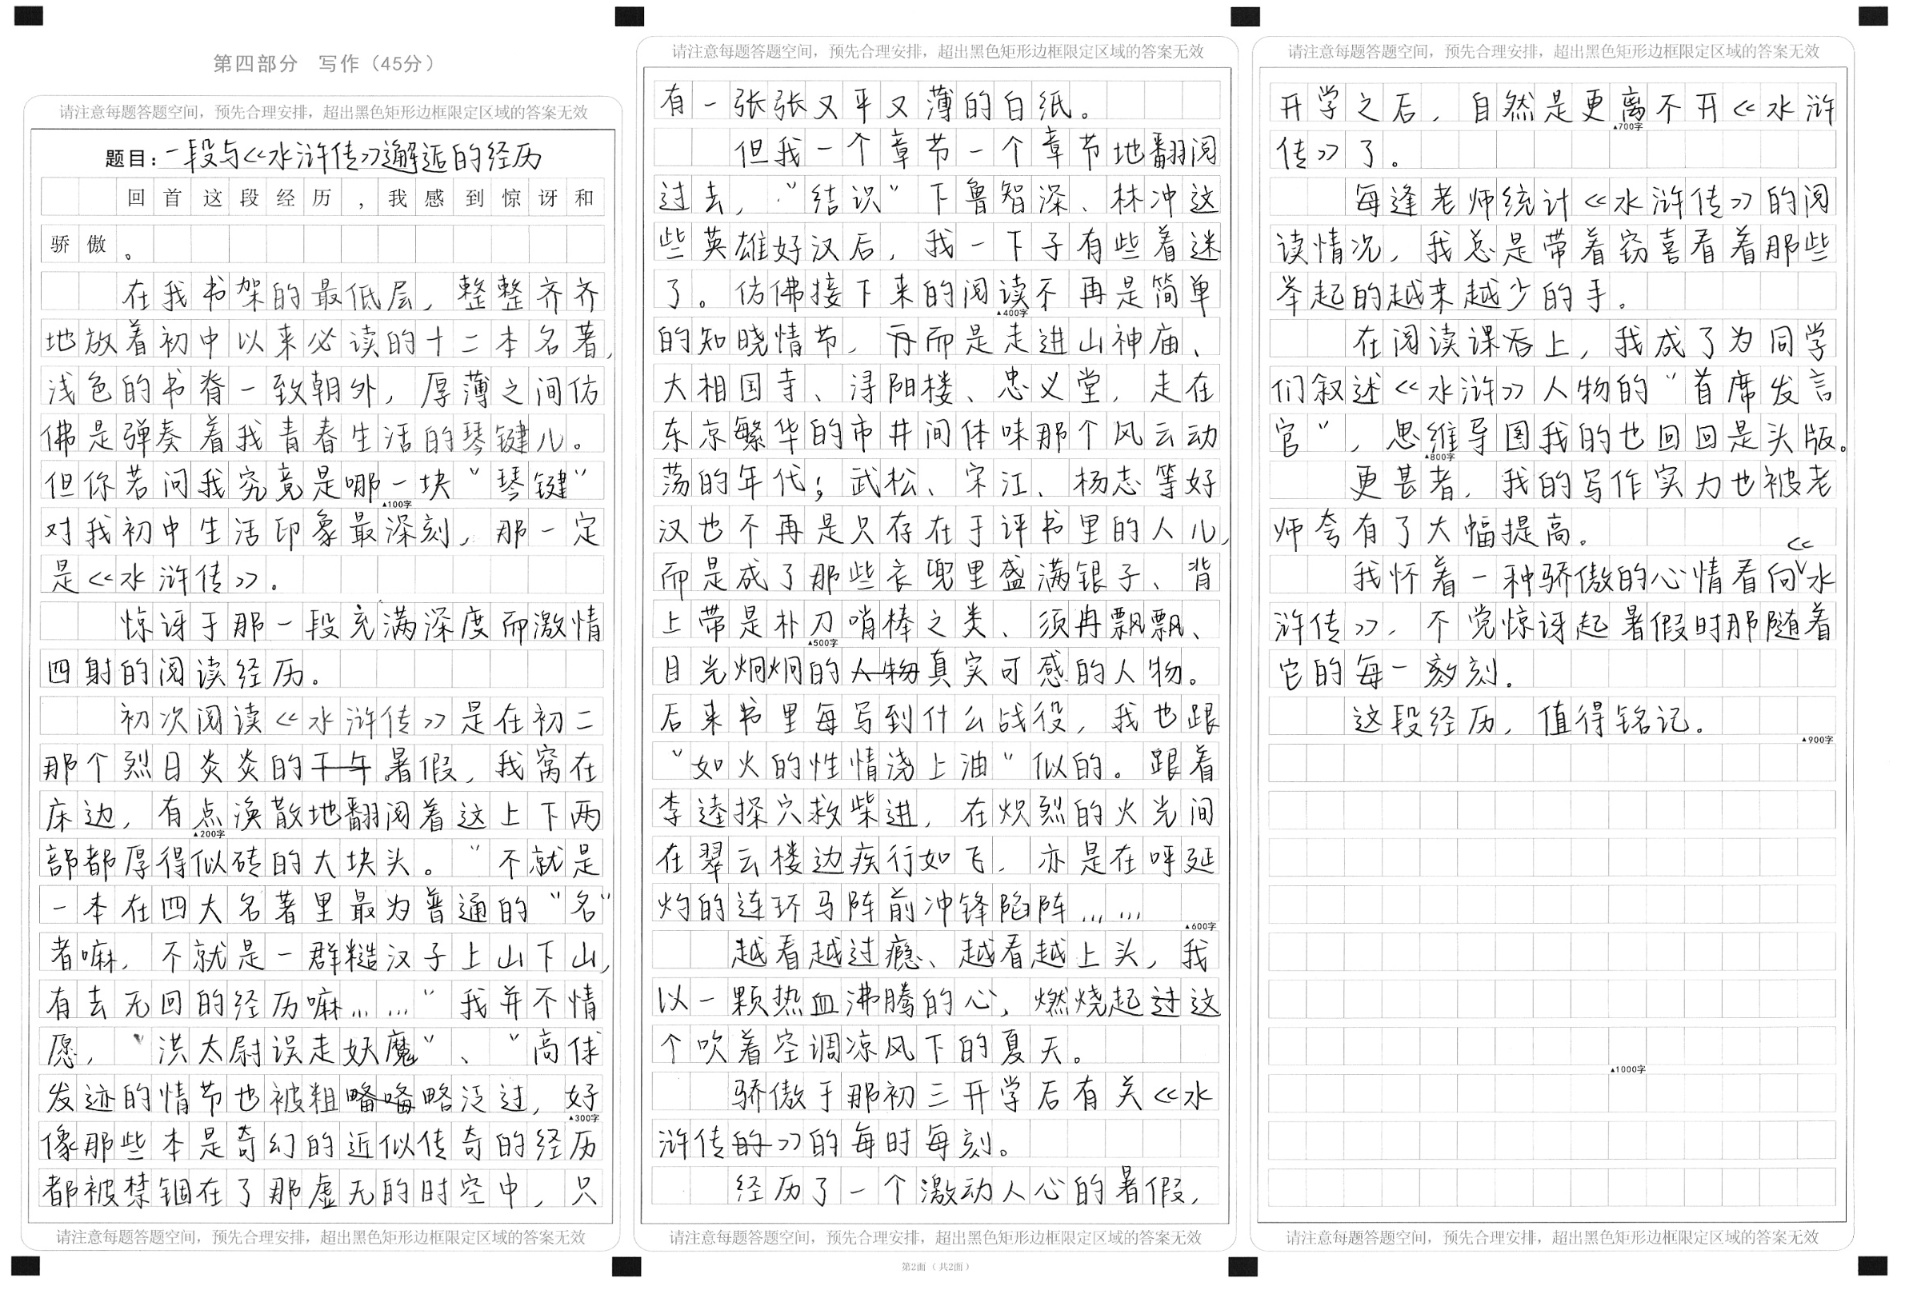 第四部分 写作（45分）
请注意每题答题空间，预先合理安排，超出黑色矩形边框限定区域的答案无效
题目：一段与《水浒传》邂逅的经历
回首这段经历，我感到惊讶和
骄傲。
在我书架的最低层，整整齐齐
地放着初中以来必读的十二本名著，
浅色的书脊一致朝外，厚薄之间仿
佛是弹奏着我青春生活的琴键儿。
但你若问我究竟是哪一块“琴键”
▲100字
对我初中生活印象最深刻，那一定
是《水浒传》。
惊讶于那一段充满深度而激情
四射的阅读经历。
初次阅读《水浒传》是在初二
那个烈日炎炎的下午暑假，我窝在
床边，有点涣散地翻阅着这上下两
▲200字
部都厚得似砖的大块头。“不就是
一本在四大名著里最为普通的“名”
著嘛，不就是一群糙汉子上山下山，
有去无回的经历嘛……”我并不情
愿，“洪太尉误走妖魔”、“高俅
发迹的情节也被粗略略泛过，好
▲300字
像那些本是奇幻的近似传奇的经历
都被禁锢在了那虚无的时空中，只
请注意每题答题空间，预先合理安排，超出黑色矩形边框限定区域的答案无效
请注意每题答题空间，预先合理安排，超出黑色矩形边框限定区域的答案无效
有一张张又平又薄的白纸。
但我一个章节一个章节地翻阅
过去，“结识”下鲁智深、林冲这
些英雄好汉后，我一下子有些着迷
了。仿佛接下来的阅读不再是简单
▲400字
的知晓情节，而是走进山神庙、
大相国寺、浔阳楼、忠义堂，走在
东京繁华的市井间体味那个风云动
荡的年代；武松、宋江、杨志等好
汉也不再是只存在于评书里的人儿，
而是成了那些衣兜里盛满银子、背
上带是朴刀哨棒之类、须冉飘飘、
▲500字
目光炯炯的人物真实可感的人物。
后来书里每写到什么战役，我也跟
“如火的性情浇上油”似的。跟着
李逵探穴救柴进，在炽烈的火光间
在翠云楼边疾行如飞，亦是在呼延
灼的连环马阵前冲锋陷阵……
▲600字
越看越过瘾、越看越上头，我
以一颗热血沸腾的心，燃烧起过这
个吹着空调凉风下的夏天。
骄傲于那初三开学后有关《水
浒传的》的每时每刻。
经历了一个激动人心的暑假，
请注意每题答题空间，预先合理安排，超出黑色矩形边框限定区域的答案无效
第2面（共2面）
请注意每题答题空间，预先合理安排，超出黑色矩形边框限定区域的答案无效
开学之后，自然是更离不开《水浒
▲700字
传》了。
每逢老师统计《水浒传》的阅
读情况，我总是带着窃喜看着那些
举起的越来越少的手。
在阅读课后上，我成了为同学
们叙述《水浒》人物的“首席发言
官”，思维导图我的也回回是头版。
▲800字
更甚者，我的写作实力也被老
师夸有了大幅提高。
我怀着一种骄傲的心情看向《水
浒传》，不觉惊讶起暑假时那随着
它的每一刻刻。
这段经历，值得铭记。
▲900字
▲1000字
请注意每题答题空间，预先合理安排，超出黑色矩形边框限定区域的答案无效